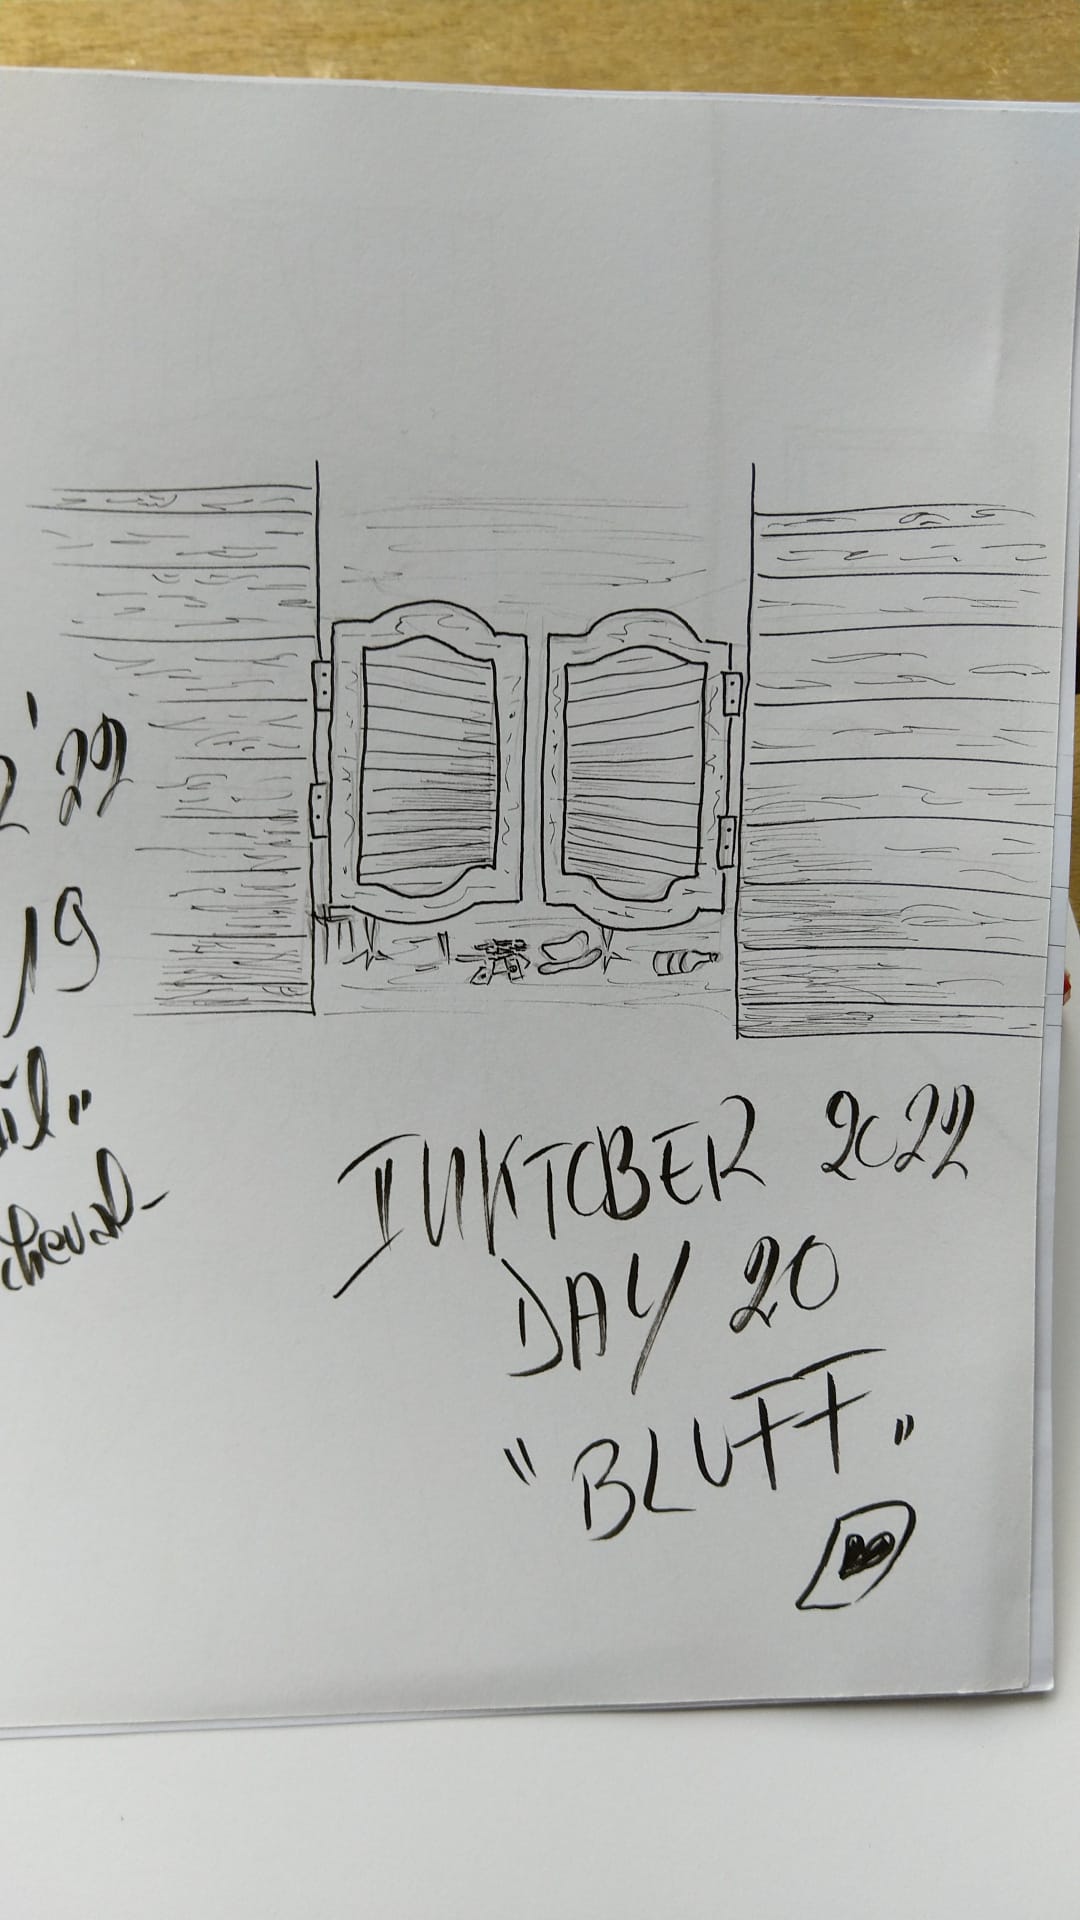 '22
19
cheval-
INKTOBER 2022
DAY 20
"BLUFF"